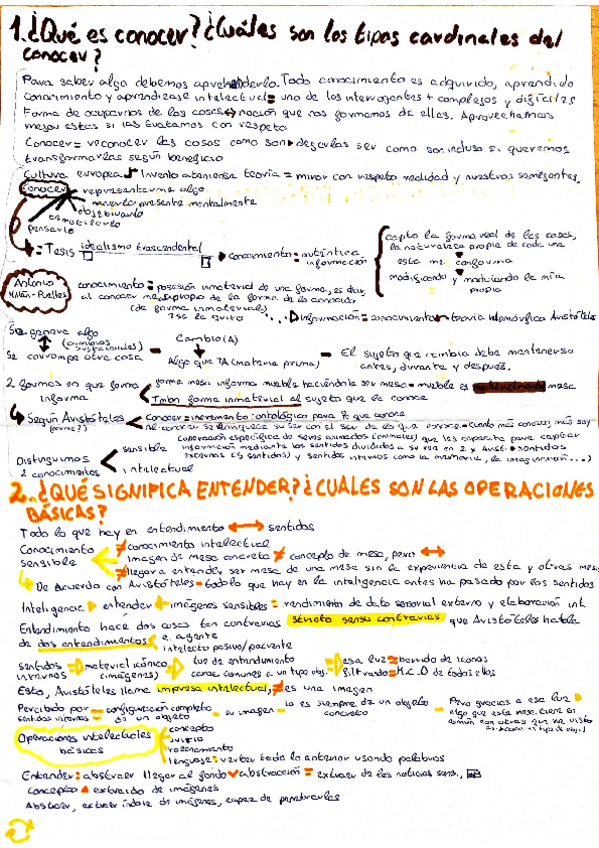 1. ¿Qué es conocer? ¿Cuáles son los tipos cardinales del
conocer?
Para saber algo debemos aprehenderlo. Todo conocimiento es adquirido, aprendido
Conocimiento y aprendizaje intelectual = uno de los interrogantes + complejos y difíciles
Forma de ocuparnos de las cosas ↔ noción que nos formamos de ellas. Aprovechamos
mejor estas si las tratamos con respeto
Conocer = reconocer las cosas como son ▸ dejarlas ser como son incluso si queremos
transformarlas según beneficio
Cultura europea Invento ateniense teoría = mirar con respeto realidad y nuestros semejantes.
Conocer representarme algo
hacerlo presente mentalmente
objetivarlo
pensarlo
= Tesis idealismo trascendental
conocimiento = auténtica
información
capto la forma real de las cosas,
la naturaleza propia de cada una
esta me conforma
modificando y modulando la mía
propia
Antonio
Millán-Puelles
conocimiento = posesión inmaterial de una forma, es decir,
al conocer me apropio de la forma de lo conocido
(de forma inmaterial)
información = conocimiento = teoría hilemórfica Aristóteles
Se genera algo
(cambios
sustanciales)
Se corrompe otra cosa
Cambio (A)
Algo que TA (materia prima)
El sujeto que cambia debe mantenerse
antes, durante y después.
2 formas en que forma
informa
forma mesa informa mueble haciéndole ser mesa = mueble es mesa
forma inmaterial al sujeto que la conoce
Según Aristóteles
Conocer = incremento ontológico para que conoce
al conocer se enriquece su ser con el ser de lo que conoce = cuanto más conozco, más soy
Distinguimos
2 conocimientos
sensible
operación específica de seres animados (animales) que les capacita para captar
información mediante los sentidos divididos a su vez en 2 x Arist. ▸ sentidos
externos (5 sentidos) y sentidos internos como la memoria, la imaginación...)
intelectual
2. ¿QUÉ SIGNIFICA ENTENDER? ¿CUÁLES SON LAS OPERACIONES
BÁSICAS?
Todo lo que hay en entendimiento ↔ sentidos
Conocimiento
sensible
≠ conocimiento intelectual
imagen de mesa concreta ≠ concepto de mesa, pero ↔
≠ llegar a entender ser mesa de una mesa sin la experiencia de esta y otras mesas
De acuerdo con Aristóteles = todo lo que hay en la inteligencia antes ha pasado por los sentidos
Inteligencia entender imágenes sensibles = rendimiento de dato sensorial externo y elaboración int.
Entendimiento hace dos cosas tan contrarias stricto sensu contrarias que Aristóteles habla
de dos entendimientos
e. agente
intelecto pasivo/paciente
sentidos
internos
material icónico
(imágenes)
luz de entendimiento
cosas comunes a un tipo obj.
esa luz = barrido de iconos
filtrando = M.C.D de todos ellos
Esto, Aristóteles llama impresa intelectual, ≠ es una imagen
Percibido por
sentidos internos
configuración completa
de un objeto
su imagen
lo es siempre de un objeto
concreto
Pero gracias a esa luz
algo que esta mesa tiene en
común con otras que he visto
Operaciones intelectuales
básicas
concepto
juicio
razonamiento
lenguaje = verter todo lo anterior usando palabras
Entender = abstraer llegar al fondo abstracción = extraer de las noticias sens.,
concepto extraído de imágenes
Abstraer, extraer índole de imágenes, capaz de pensarlas